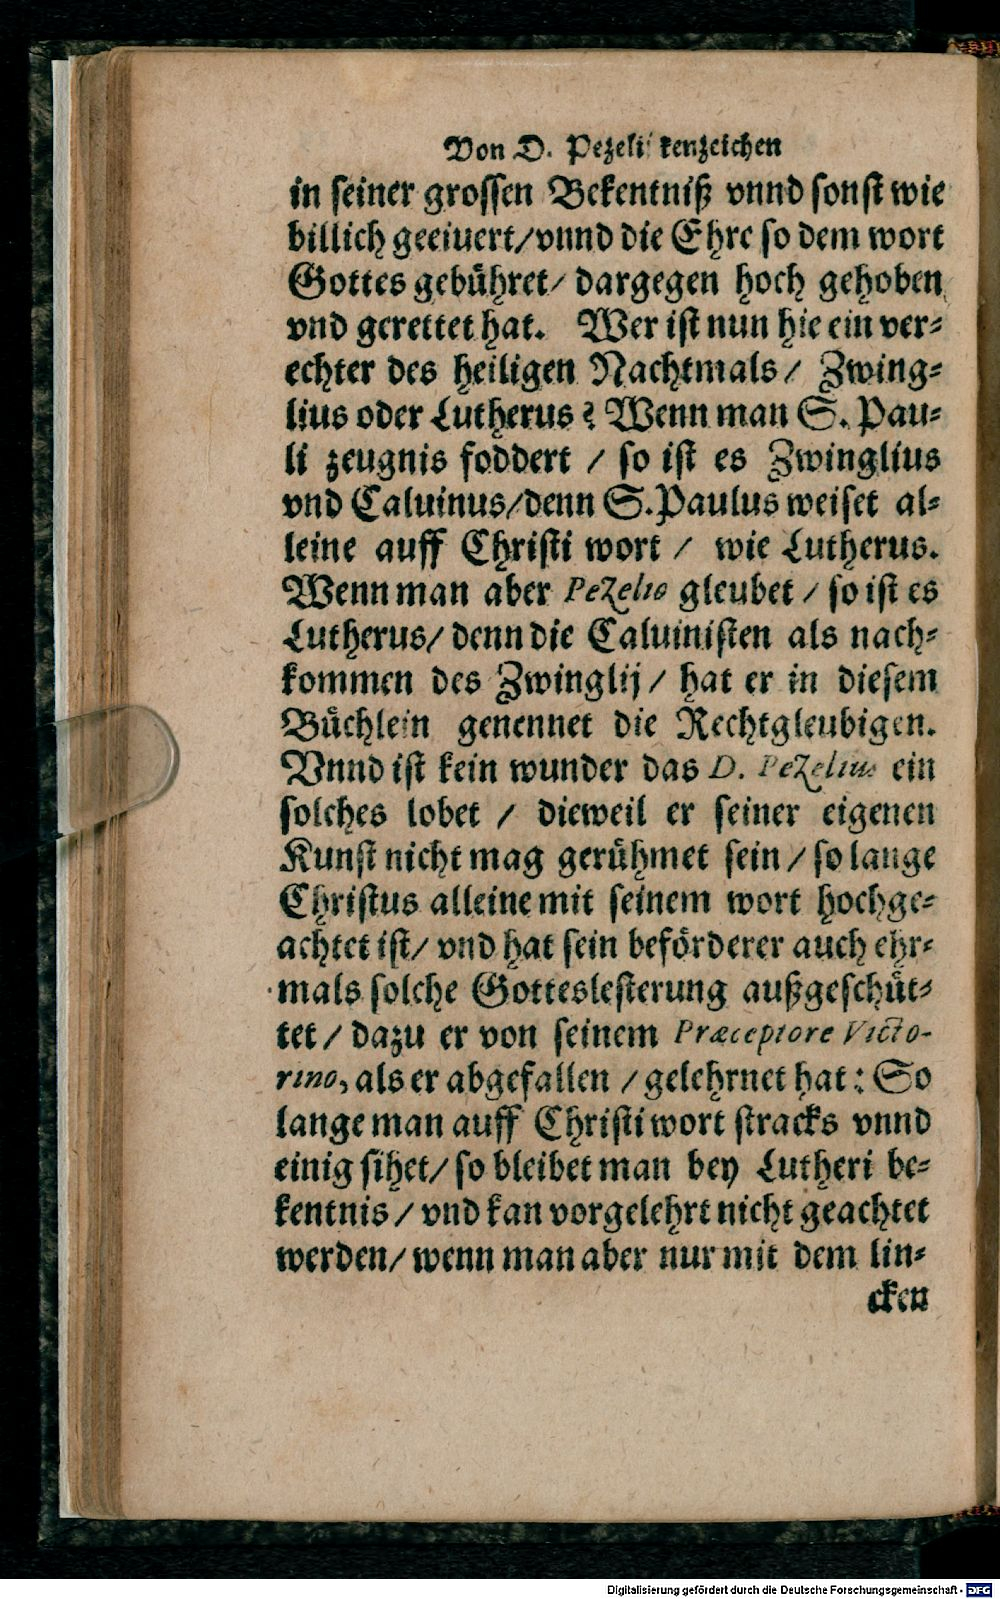 Von D. Pezeli kenzeichen
in seiner grossen Bekentniß vnnd sonst wie
billich geeiuert/vnnd die Ehre so dem wort
Gottes gebühret/ dargegen hoch gehoben
vnd gerettet hat. Wer ist nun hie ein ver-
echter des heiligen Nachtmals/ Zwing-
lius oder Lutherus? Wenn man S. Pau-
li zeugnis foddert / so ist es Zwinglius
vnd Caluinus/denn S. Paulus weiset al-
leine auff Christi wort / wie Lutherus.
Wenn man aber Pezelio gleubet / so ist es
Lutherus/ denn die Caluinisten als nach-
kommen des Zwinglij/ hat er in diesem
Büchlein genennet die Rechtgleubigen.
Vnnd ist kein wunder das D. Pezelius ein
solches lobet / dieweil er seiner eigenen
Kunst nicht mag gerühmet sein / so lange
Christus alleine mit seinem wort hochge-
achtet ist/ vnd hat sein beförderer auch ehr-
mals solche Gotteslesterung außgeschüt-
tet / dazu er von seinem Præceptore Victo-
rino, als er abgefallen / gelehrnet hat: So
lange man auff Christi wort stracks vnnd
einig sihet/ so bleibet man bey Lutheri be-
kentnis / vnd kan vorgelehrt nicht geachtet
werden/ wenn man aber nur mit dem lin-
cken
Digitalisierung gefördert durch die Deutsche Forschungsgemeinschaft - DFG